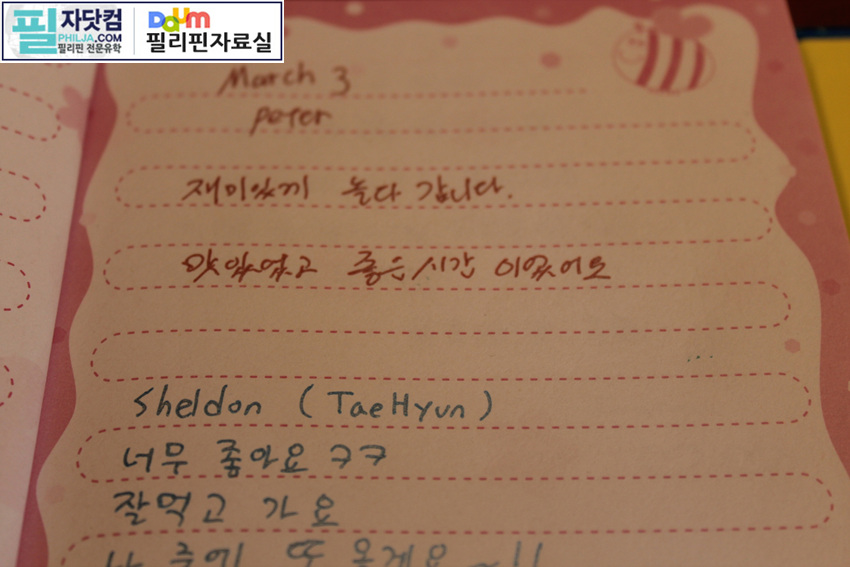 필자닷컴
PHILJA.COM
필리핀 전문유학
Daum
필리핀자료실
March 3
peter
재미있끼 놀다 갑니다.
맛있었고 좋은시간 이었어요
...
Sheldon (TaeHyun)
너무 좋아요 ㅋㅋ
잘먹고 가요
나중에 또 올게요~!!